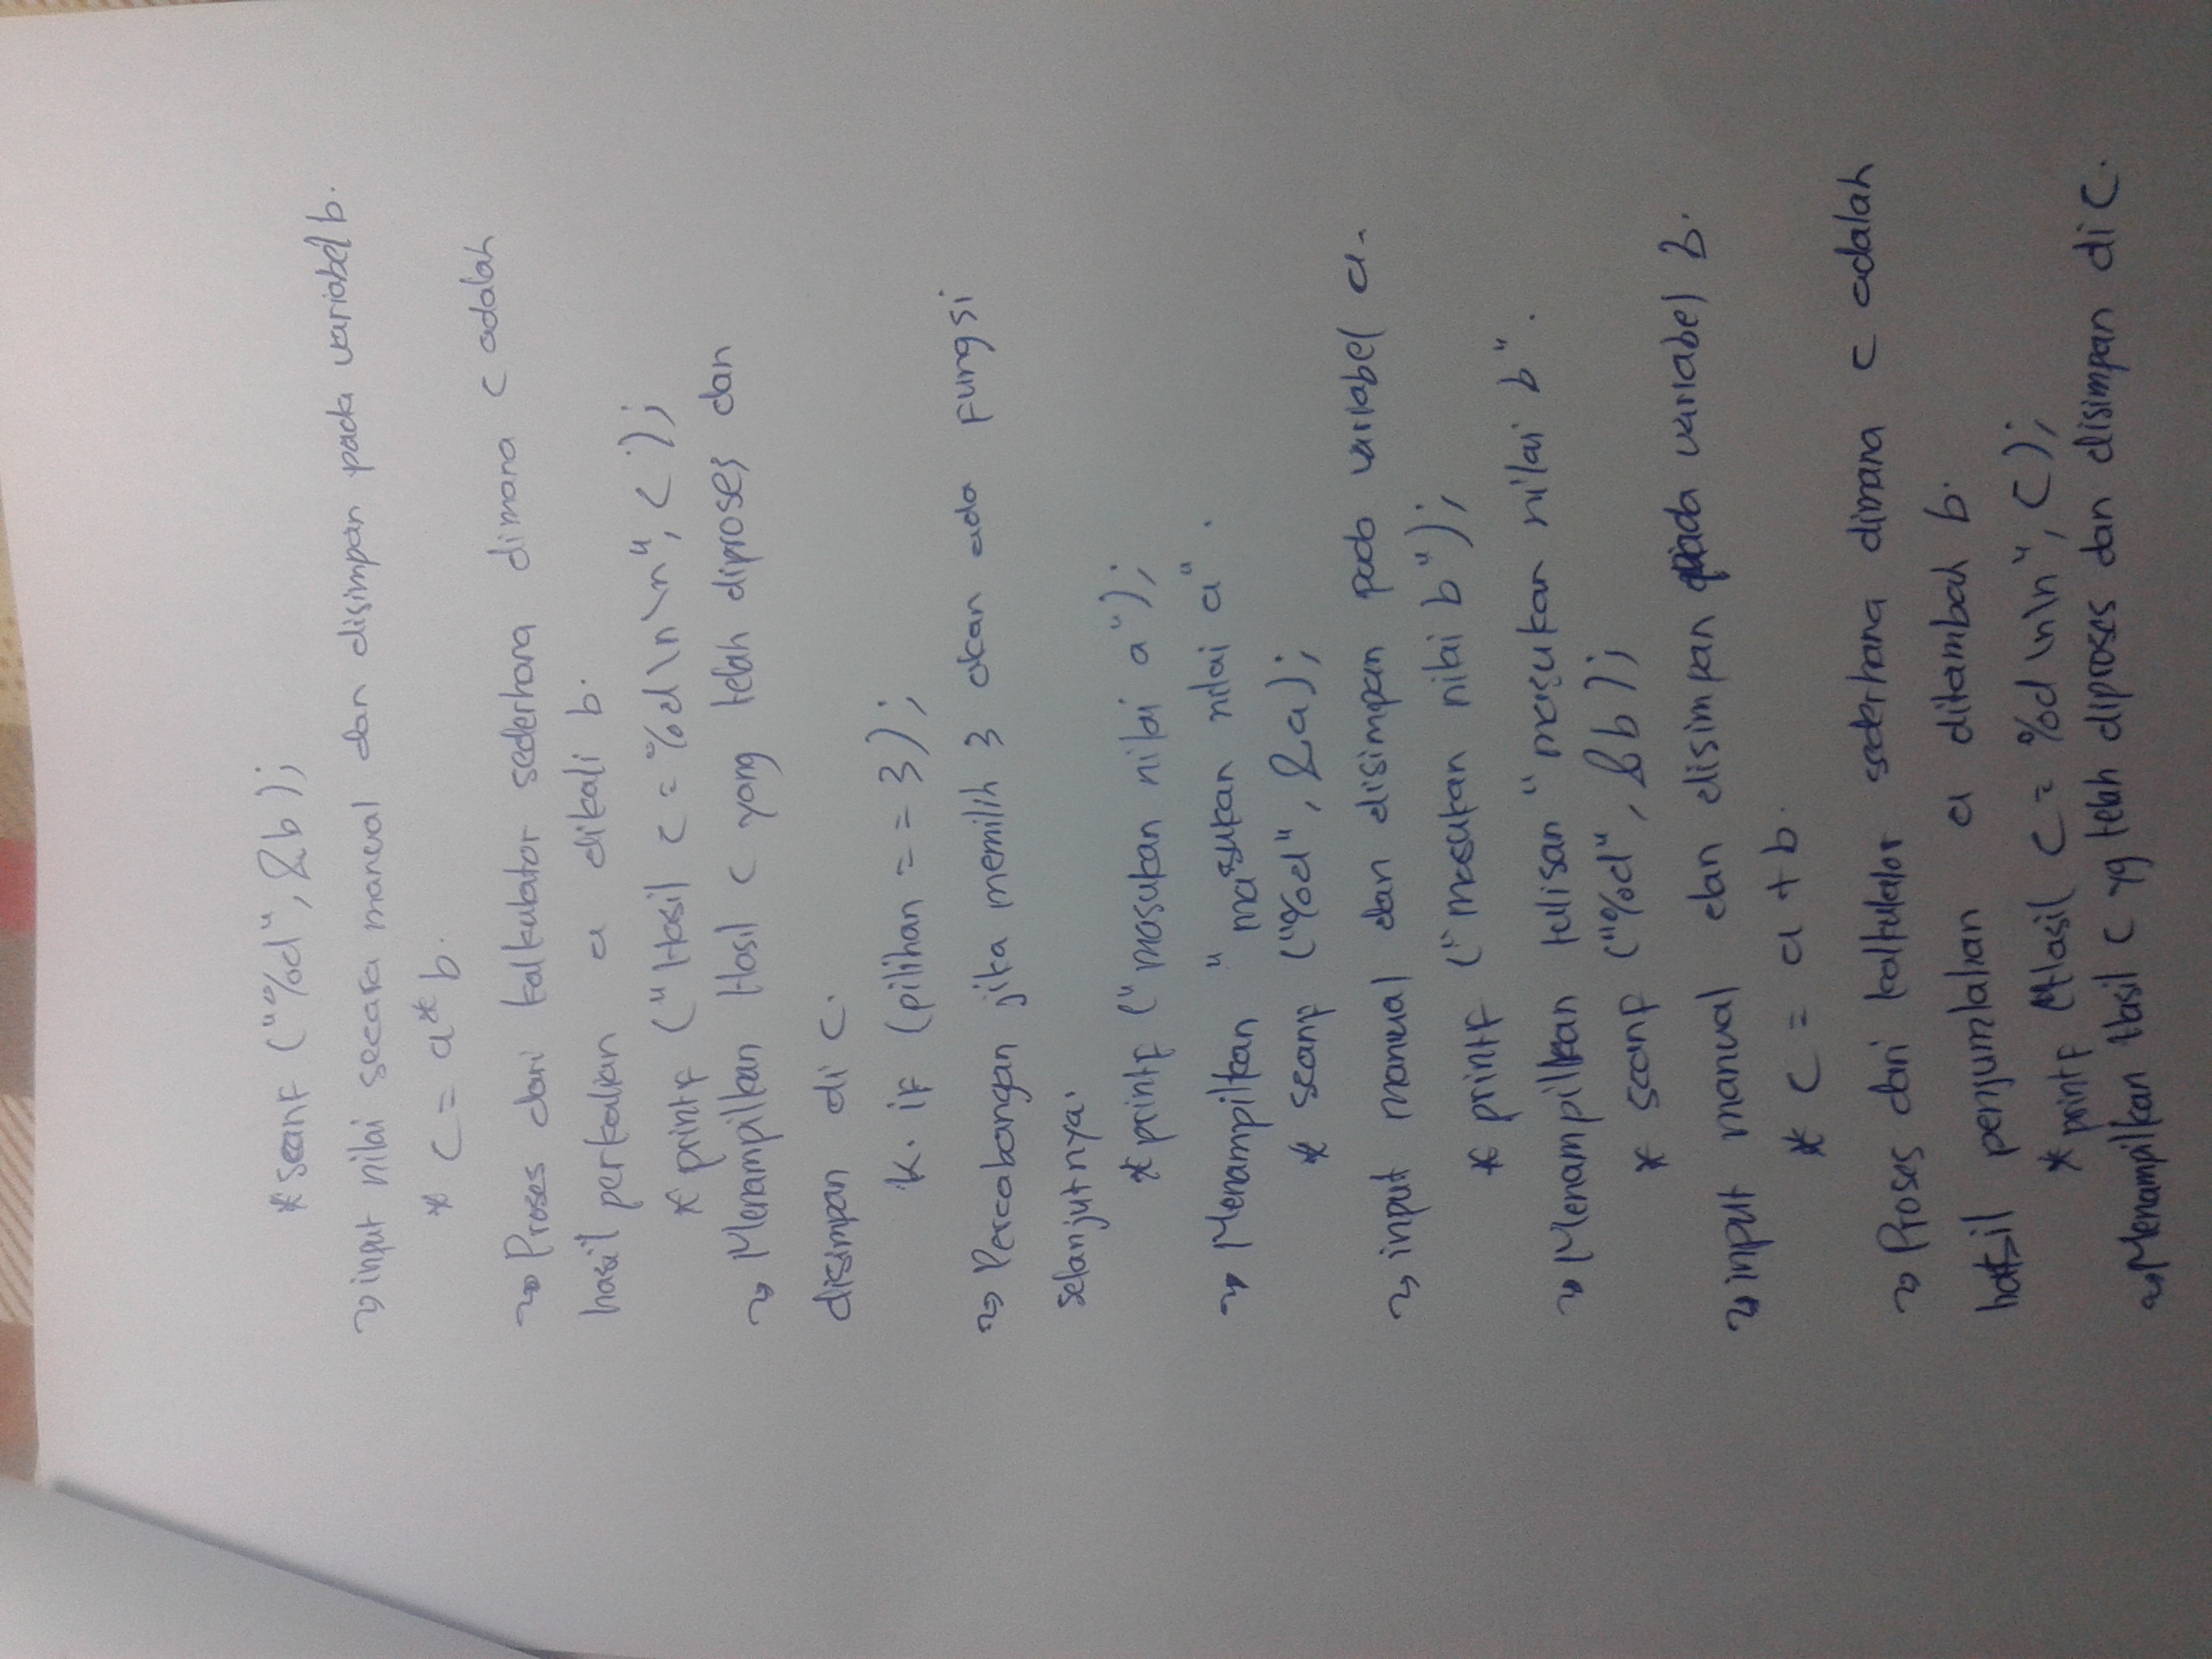 * scanf ("%d", &b);
→ input nilai secara manual dan disimpan pada variabel b.
* c = a * b.
→ Proses dari kalkulator sederhana dimana c adalah
hasil perkalian a dikali b.
* printf ("Hasil c = %d\n\n", c);
→ Menampilkan Hasil c yang telah diproses dan
disimpan di c.
K. if (pilihan == 3);
→ Percabangan jika memilih 3 akan ada fungsi
selanjutnya.
* printf ("masukan nilai a");
→ Menampilkan "masukan nilai a".
* scanf ("%d", &a);
→ input manual dan disimpan pada variabel a.
* printf ("masukan nilai b");
→ Menampilkan tulisan "masukan nilai b".
* scanf ("%d", &b);
→ input manual dan disimpan pada variabel b.
* c = a + b.
→ Proses dari kalkulator sederhana dimana c adalah
hasil penjumlahan a ditambah b.
* printf ("Hasil c = %d \n\n", c);
→ Menampilkan Hasil c yg telah diproses dan disimpan di c.